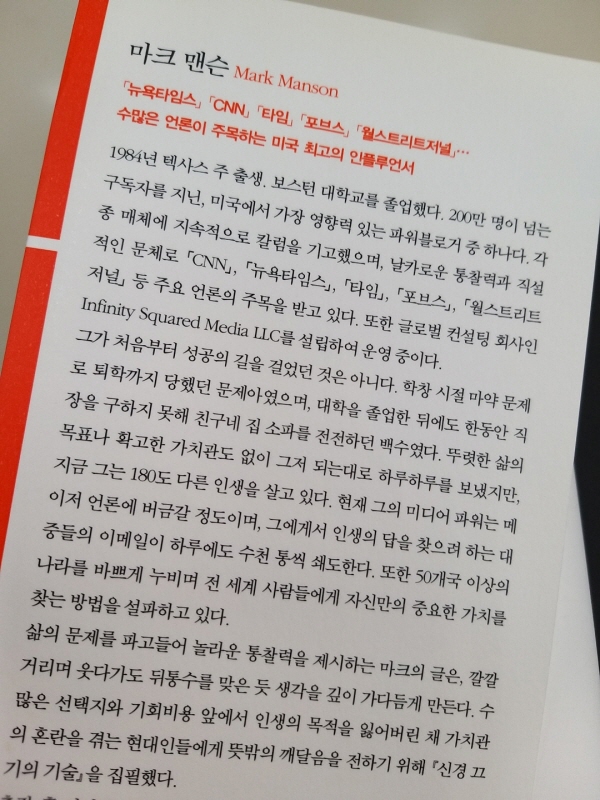 마크 맨슨 Mark Manson
「뉴욕타임스」 「CNN」 「타임」 「포브스」 「월스트리트저널」…
수많은 언론이 주목하는 미국 최고의 인플루언서
1984년 텍사스 주 출생. 보스턴 대학교를 졸업했다. 200만 명이 넘는
구독자를 지닌, 미국에서 가장 영향력 있는 파워블로거 중 하나다. 각
종 매체에 지속적으로 칼럼을 기고했으며, 날카로운 통찰력과 직설
적인 문체로 「CNN」, 「뉴욕타임스」, 「타임」, 「포브스」, 「월스트리트
저널」 등 주요 언론의 주목을 받고 있다. 또한 글로벌 컨설팅 회사인
Infinity Squared Media LLC를 설립하여 운영 중이다.
그가 처음부터 성공의 길을 걸었던 것은 아니다. 학창 시절 마약 문제
로 퇴학까지 당했던 문제아였으며, 대학을 졸업한 뒤에도 한동안 직
장을 구하지 못해 친구네 집 소파를 전전하던 백수였다. 뚜렷한 삶의
목표나 확고한 가치관도 없이 그저 되는대로 하루하루를 보냈지만,
지금 그는 180도 다른 인생을 살고 있다. 현재 그의 미디어 파워는 메
이저 언론에 버금갈 정도이며, 그에게서 인생의 답을 찾으려 하는 대
중들의 이메일이 하루에도 수천 통씩 쇄도한다. 또한 50개국 이상의
나라를 바쁘게 누비며 전 세계 사람들에게 자신만의 중요한 가치를
찾는 방법을 설파하고 있다.
삶의 문제를 파고들어 놀라운 통찰력을 제시하는 마크의 글은, 깔깔
거리며 웃다가도 뒤통수를 맞은 듯 생각을 깊이 가다듬게 만든다. 수
많은 선택지와 기회비용 앞에서 인생의 목적을 잃어버린 채 가치관
의 혼란을 겪는 현대인들에게 뜻밖의 깨달음을 전하기 위해 『신경 끄
기의 기술』을 집필했다.